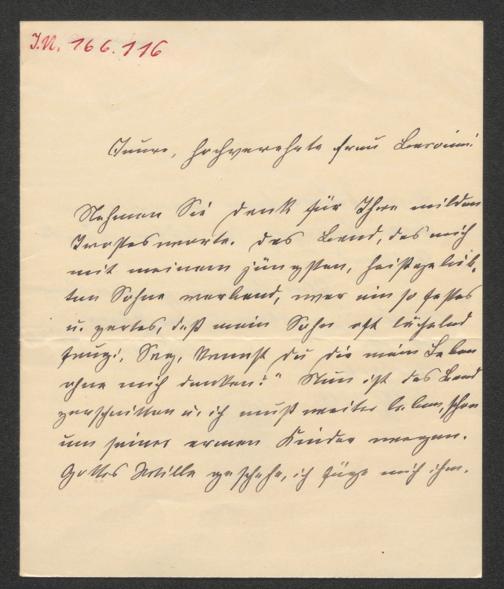 I.N. 166.116
Teure, hochverehrte Frau Baronin!
Nehmen Sie Dank für Ihre milden
Trostesworte. Das Band, das mich
mit meinem jüngsten, heißgelieb-
ten Sohne verband, war ein so festes
u. zartes, daß mein Sohn oft lächelnd
frug: „Sag, kannst du dir mein Leben
ohne mich denken?" Nun ist das Band
zerschnitten u. ich muß weiter leben, schon
um seiner armen Kinder wegen.
Gottes Wille geschehe, ich füge mich ihm.